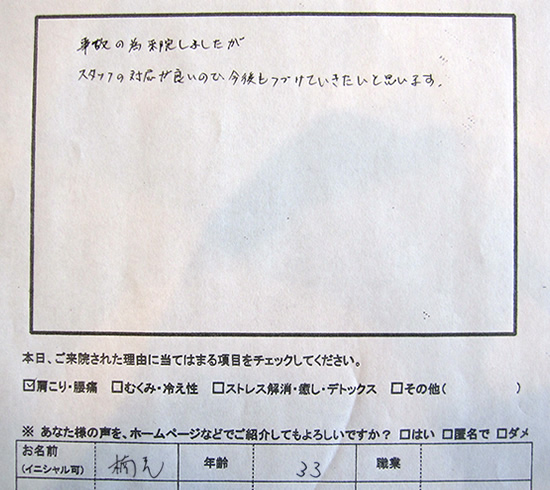 事故の為来院しましたが
スタッフの対応が良いので今後もつづけていきたいと思います。
本日、ご来院された理由に当てはまる項目をチェックしてください。
☑肩こり・腰痛 □むくみ・冷え性 □ストレス解消・癒し・デトックス □その他( )
※ あなた様の声を、ホームページなどでご紹介してもよろしいですか? □はい □匿名で □ダメ
お名前 年齢 33 職業
(イニシャル可)